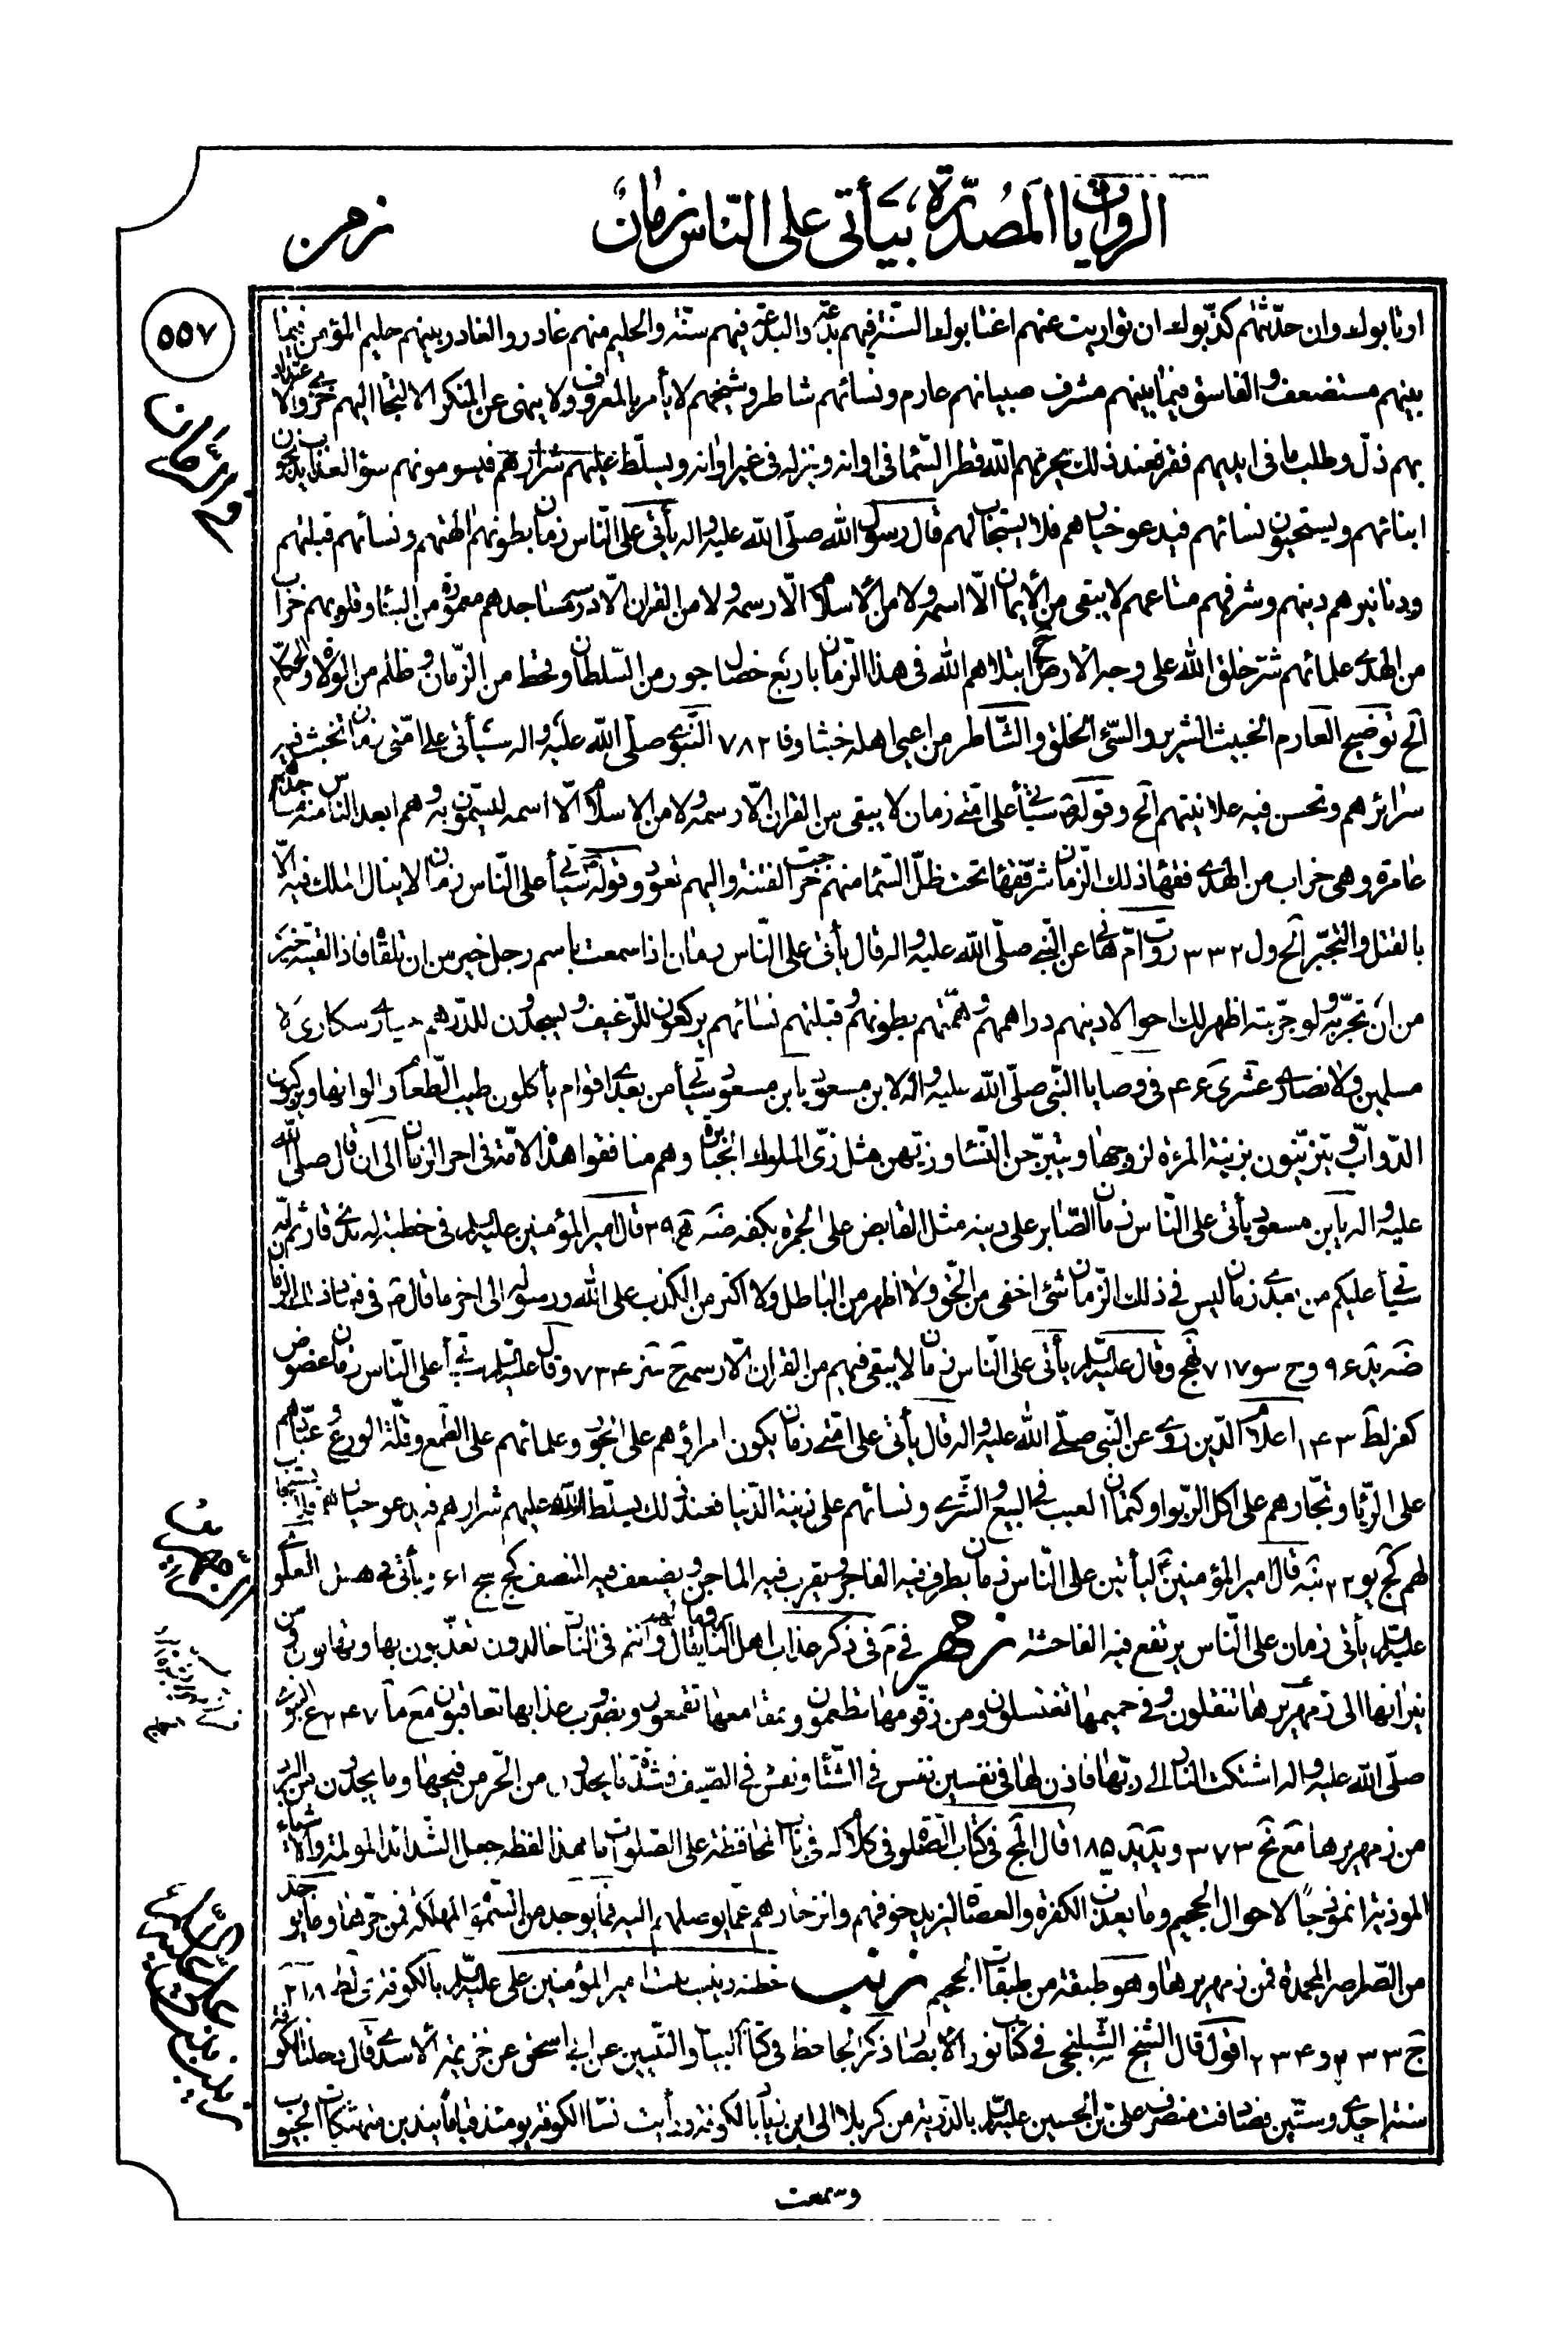 الروايات المصدّرة بيأتى على النّاس زمانٌ
زمن
٥٥٧
ارتابوك وان حدّثتهم كذّبوك ان تواريت عنهم اغتابوك السنّة فيهم بدعة والبدعة فيهم سنّة والحليم منهم غادر والغادر بينهم حليم المؤمن فيما
بينهم مستضعف والفاسق فيما بينهم مشرف صبيانهم عارم ونسائهم شاطر وشيخهم لا يأمر بالمعروف ولا ينهى عن المنكر الالتجاء اليهم خزى والاعتداد
بهم ذلّ وطلب ما فى ايديهم فقر فعند ذلك يحرمهم الله قطر السّماء فى اوانه وينزله فى غير اوانه ويسلّط عليهم شرارهم فيسومونهم سوء العذاب يذبحون
ابنائهم ويستحيون نسائهم فيدعو خيارهم فلا يستجاب لهم قال رسول الله صلّى الله عليه واله يأتى على النّاس زمان بطونهم الهتهم ونسائهم قبلتهم
ودنانيرهم دينهم وشرفهم متاعهم لا يبقى من الايمان الّا اسمه ولا من الاسلام الّا رسمه ولا من القران الّا درسه مساجدهم معمورة من البناء وقلوبهم خراب
من الهدى علمائهم شرّ خلق الله على وجه الارض ح ابتلاهم الله فى هذا الزّمان باربع خصال جور من السّلطان وقحط من الزّمان وظلم من الولاة والحكّام
الخ توضيح العارم الخبيث الشرير والسّىّء الخلق والشّاطر من اعيى اهله خبثا وفا ٧٨٢ النّبوى صلّى الله عليه واله سيأتى على امّتى زمان تخبث فيه
سرائرهم وتحسن فيه علانيتهم الخ وقوله ص سيأتى على امّتى زمان لا يبقى من القران الّا رسمه ولا من الاسلام الّا اسمه يسمّون به وهم ابعد الناس منه مساجدهم
عامرة وهى خراب من الهدى فقهاء ذلك الزّمان شرّ فقهاء تحت ظلّ السّماء منهم خرجت الفتنة واليهم تعود وقوله ص سيأتى على النّاس زمان لا ينال الملك فيه الّا
بالقتل والتّجبّر الخ ول ٣٣٢ روت امّ هانى عن النّبى صلّى الله عليه واله قال يأتى على النّاس زمان اذا سمعت باسم رجل خير من ان تلقاه فاذا لقيته خير
من ان تجرّبه ولو جرّبته اظهر لك احوالا دينهم دراهمهم وهمّتهم بطونهم وقبلتهم نسائهم يركعون للرّغيف ويسجدون للدّرهم حيارى سكارى لا
مسلمين ولا نصارى عشرى ٤٤ فى وصايا النّبى صلّى الله عليه واله لابن مسعود يابن مسعود سيأتى من بعدى اقوام يأكلون طيب الطّعام والوانها ويركبون
الدّوابّ ويتزيّنون بزينة المرءة لزوجها ويتبرّجن النّساء وزيّهن مثل زىّ الملوك الجبابرة وهم منافقوا هذه الامّة فى اخر الزمان الى ان قال صلى الله
عليه واله يابن مسعود يأتى على النّاس زمان الصّابر على دينه مثل القابض على الجمرة بكفه ضه قح ٣٩ قال امير المؤمنين عليه السلم فى خطبة له بذى قار ثم انّه
سيأتى عليكم من بعدى زمان ليس فى ذلك الزّمان شئ اخفى من الحقّ ولا اظهر من الباطل ولا اكثر من الكذب على الله ورسوله الى اخر ما قال فى ذلك الزّمان
ضه يد ٩٤ وح سو ٧١٧ نهج وقال عليه السلم يأتى على النّاس زمان لا يبقى فيهم من القران الّا رسمه ح سز ٧٣٤ وقال عليه السلم يأتى على النّاس زمان عضوض
كفر لط ١٤٣ اعلام الدّين روى عن النّبى صلّى الله عليه واله قال يأتى على امّتى زمان يكون امراؤهم على الجور وعلمائهم على الطّمع وقلّة الورع وعبّادهم
على الرّيا وتجّارهم على اكل الرّبوا وكتمان العيب فى البيع والشّرى ونسائهم على زينة الدّنيا فعند ذلك يسلّط الله عليهم شرارهم فيدعو خيارهم فلا يستجاب
لهم كج يو ٢٣ نبه قال امير المؤمنين ع ليأتين على النّاس زمان يطرف فيه الفاجر ويقرب فيه الماجن ويضعف فيه المنصف كج سج ١٤١ ويأتى فى العلوى
عليه السلم يأتى زمان على النّاس يرتفع فيه الفاحشة زمهر فى م فى ذكر عذاب اهل النّار يقال وانتم فى النّار خالدون تعذّبون بها وتهانون ومن
نيرانها الى زمهريرها تنقلون وفى حميمها تغتسلون ومن زقّومها تطعمون وبمقامعها تقمعون وبضروب عذابها تعاقبون مع ما ٢٤٧ ع النبوى
صلّى الله عليه واله اشتكت النار الى ربّها فاذن لها فى نفسين نفس فى الشّتاء ونفس فى الصّيف فشدّة ما يجدون من الحّر من فيحها وما يجدون من البرد
من زمهريرها مع نح ٣٧٣ ويد يد ١٨٥ قال المج فى كتاب الصّلوة فى كلام له فى باب المحافظة على الصّلوات ما هذا لفظه جعل الشّدائد المولمة والاشياء
الموذية انموذجا لاحوال الجحيم وما يعذّب الكفرة والعصاة ليزيد خوفهم وانزجارهم عمّا يوصلهم اليه فما يوجد من السّموم المهلكة فمن حرّها وما يوجد
من الصّراصر المجمدة فمن زمهريرها وهو طبقة من طبقات الجحيم زينب خطبة زينب بنت امير المؤمنين على عليه السلم بالكوفة ى لط ٢١٨
ج ٣٣ ٢ و ٢٣٤ اقول قال الشّيخ الشّبلنجى فى كتاب نور الابصار ذكر الجاحظ فى كتاب البيان والتّبيين عن ابى اسحق عن خزيمة الاسدى قال دخلنا الكوفة
سنة احدى وستّين فصادفت منصرف علىّ بن الحسين عليه السلم بالذرية من كربلا الى ابن زياد بالكوفة ورأيت نساء الكوفة يومئذ قياما يندبن متهتّكات الجيوب
وسمعت